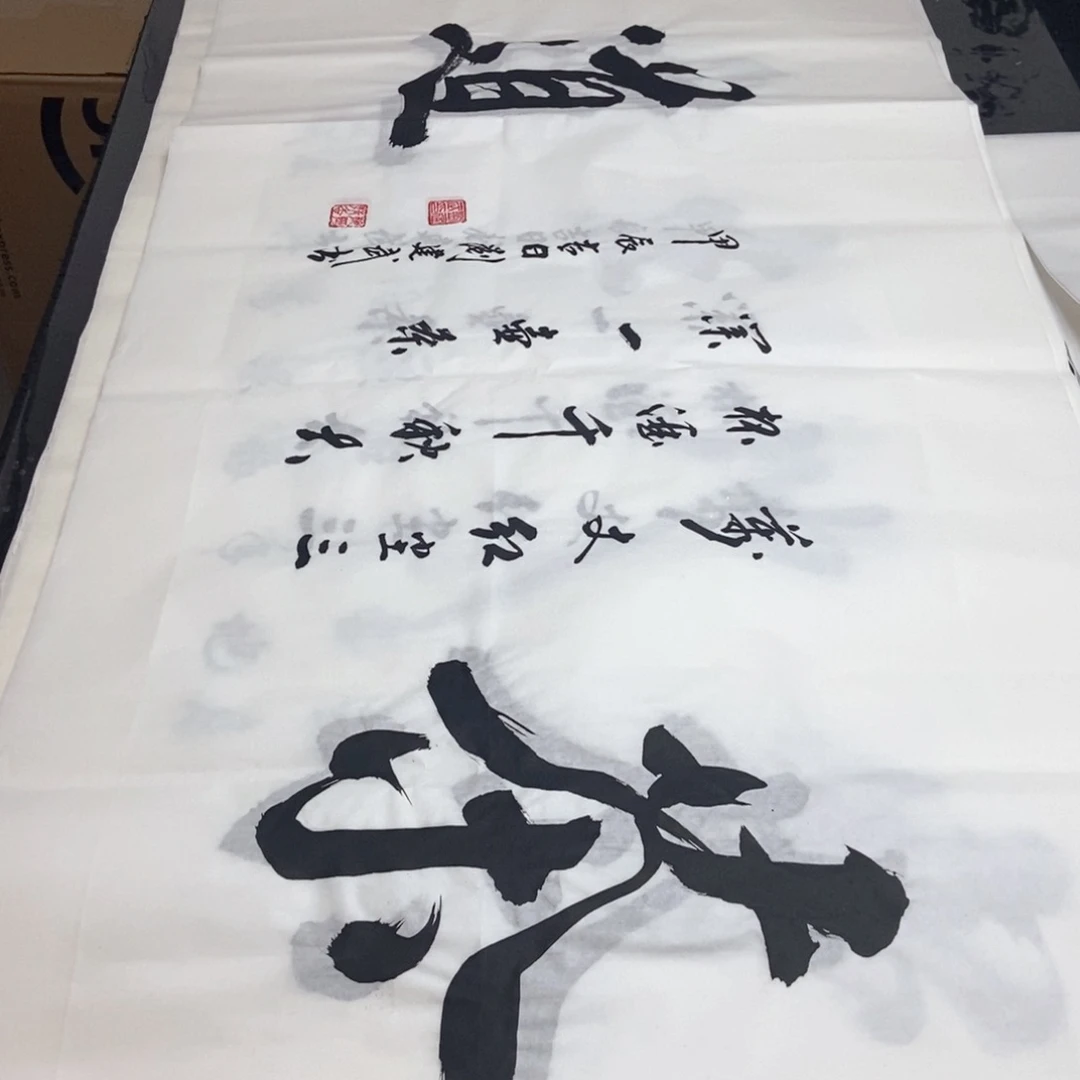 茶
萬丈紅尘三
杯酒千秋大
業一壺茶
甲辰吉日劉建武書
道